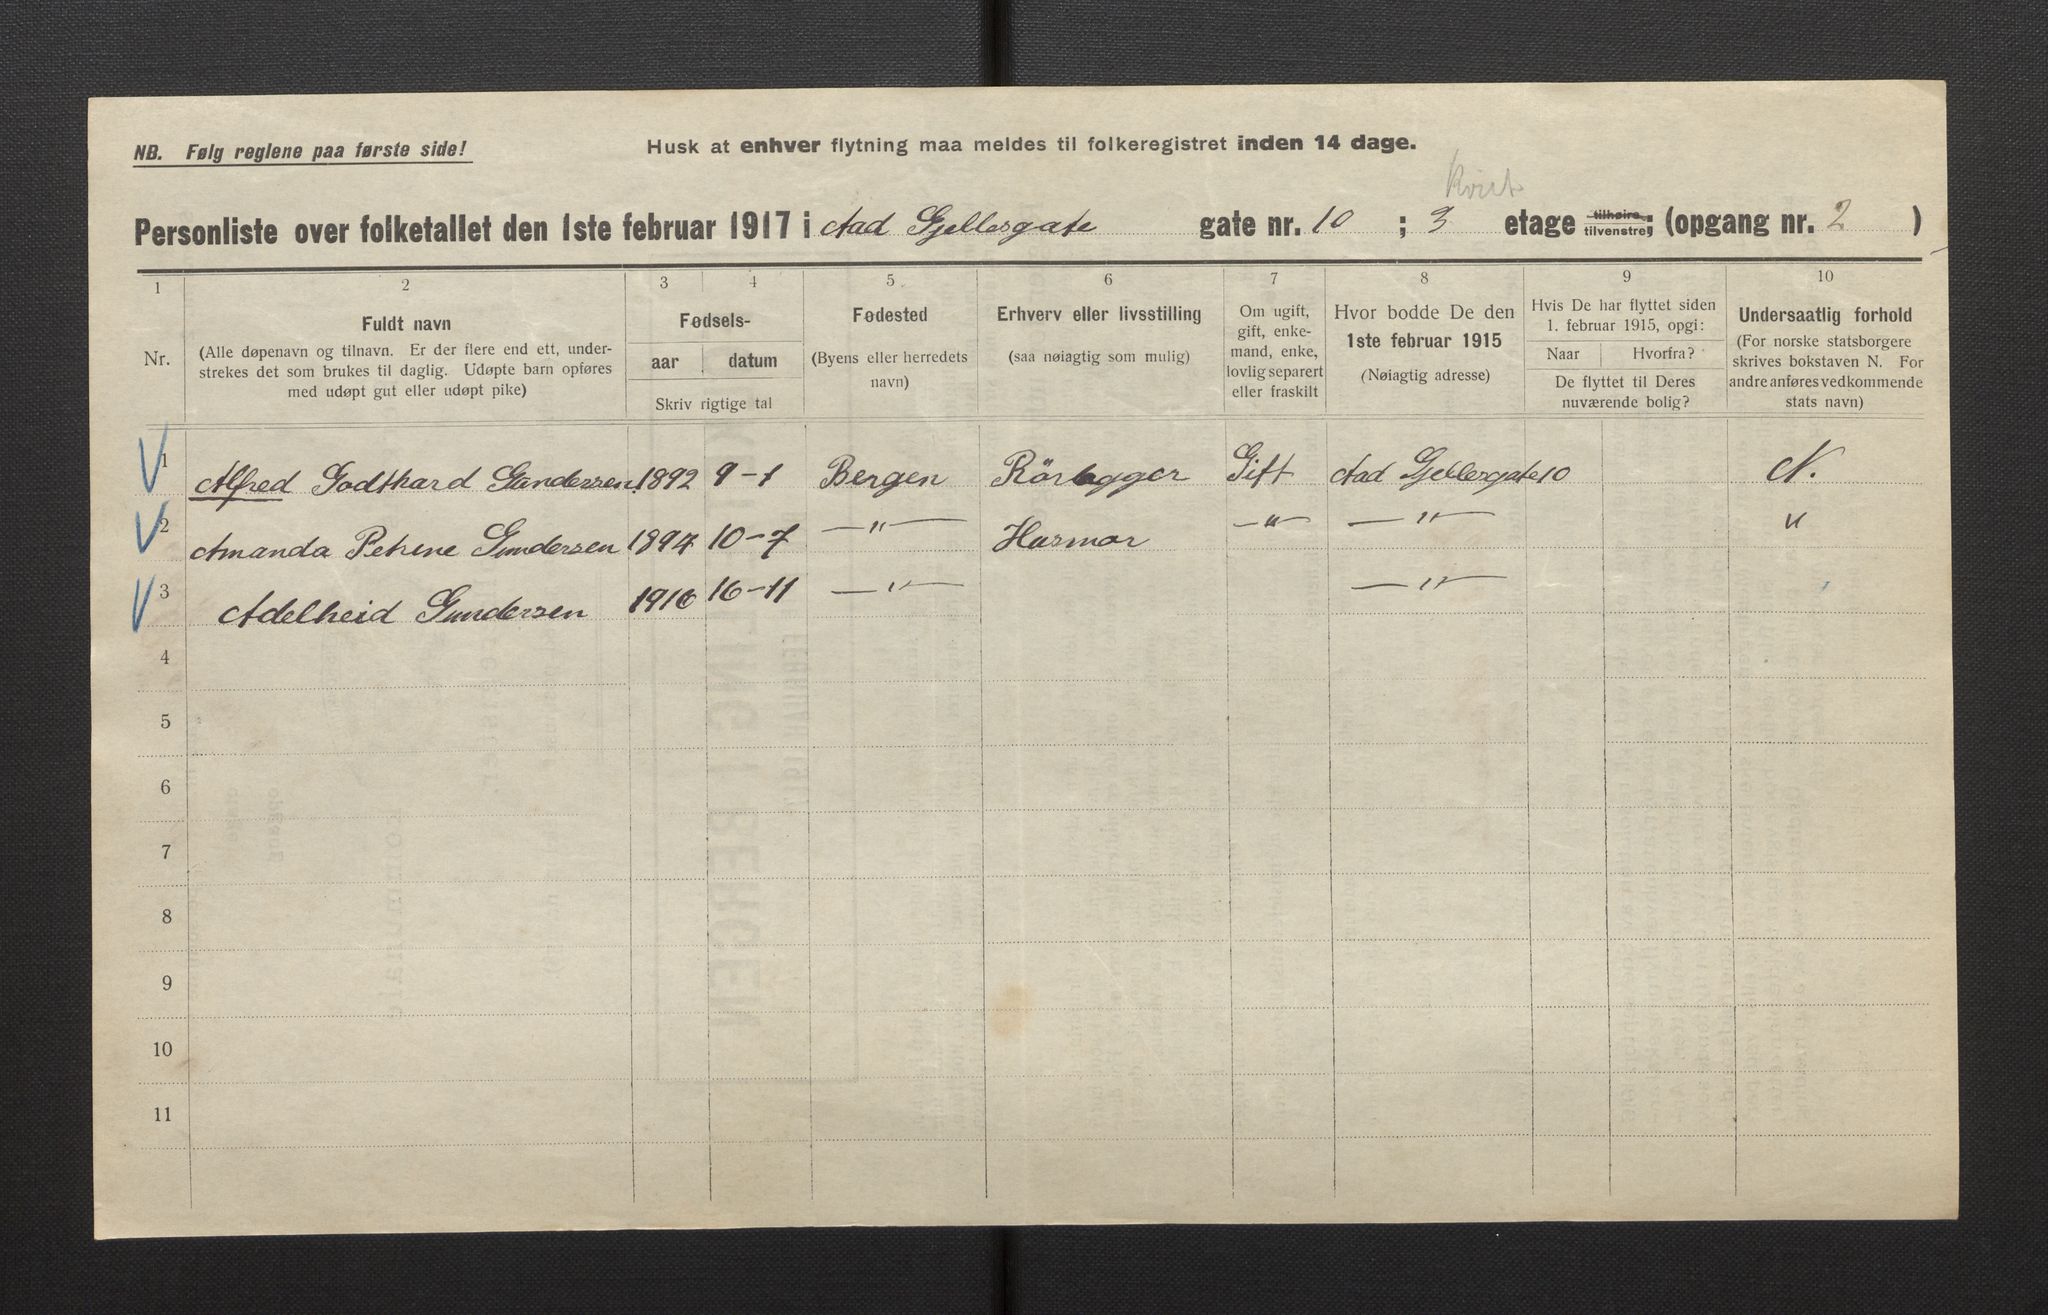 NB. Følg reglene paa første side!
Husk at enhver flytning maa meldes til folkeregistret inden 14 dage.
Kvist
Personliste over folketallet den 1ste februar 1917 i Aad Gjellesgate gate nr. 10 ; 3 etage tilhøire tilvenstre; (opgang nr. 2 )
1 2 3 4 5 6 7 8 9 10
Nr.
Fuldt navn
(Alle døpenavn og tilnavn. Er der flere end ett, under-
strekes det som brukes til daglig. Udøpte barn opføres
med udøpt gut eller udøpt pike)
Fødsels-
aar datum
Skriv rigtige tal
Fødested
(Byens eller herredets
navn)
Erhverv eller livsstilling
(saa nøiagtig som mulig)
Om ugift,
gift, enke-
mand, enke,
lovlig separert
eller fraskilt
Hvor bodde De den
1ste februar 1915
(Nøiagtig adresse)
Hvis De har flyttet siden
1. februar 1915, opgi:
Naar Hvorfra?
De flyttet til Deres
nuværende bolig?
Undersaatlig forhold
(For norske statsborgere
skrives bokstaven N. For
andre anføres vedkommende
stats navn)
1 Alfred Godthard Gundersen. 1892 9-1 Bergen Rörlegger Gift Aad Gjellesgate 10 N.
2 Amanda Petrine Gundersen 1894 10-7 —"— Husmor —"— —"— "
3 Adelheid Gundersen 1916 16-11 —"— —"—
4
5
6
7
8
9
10
11